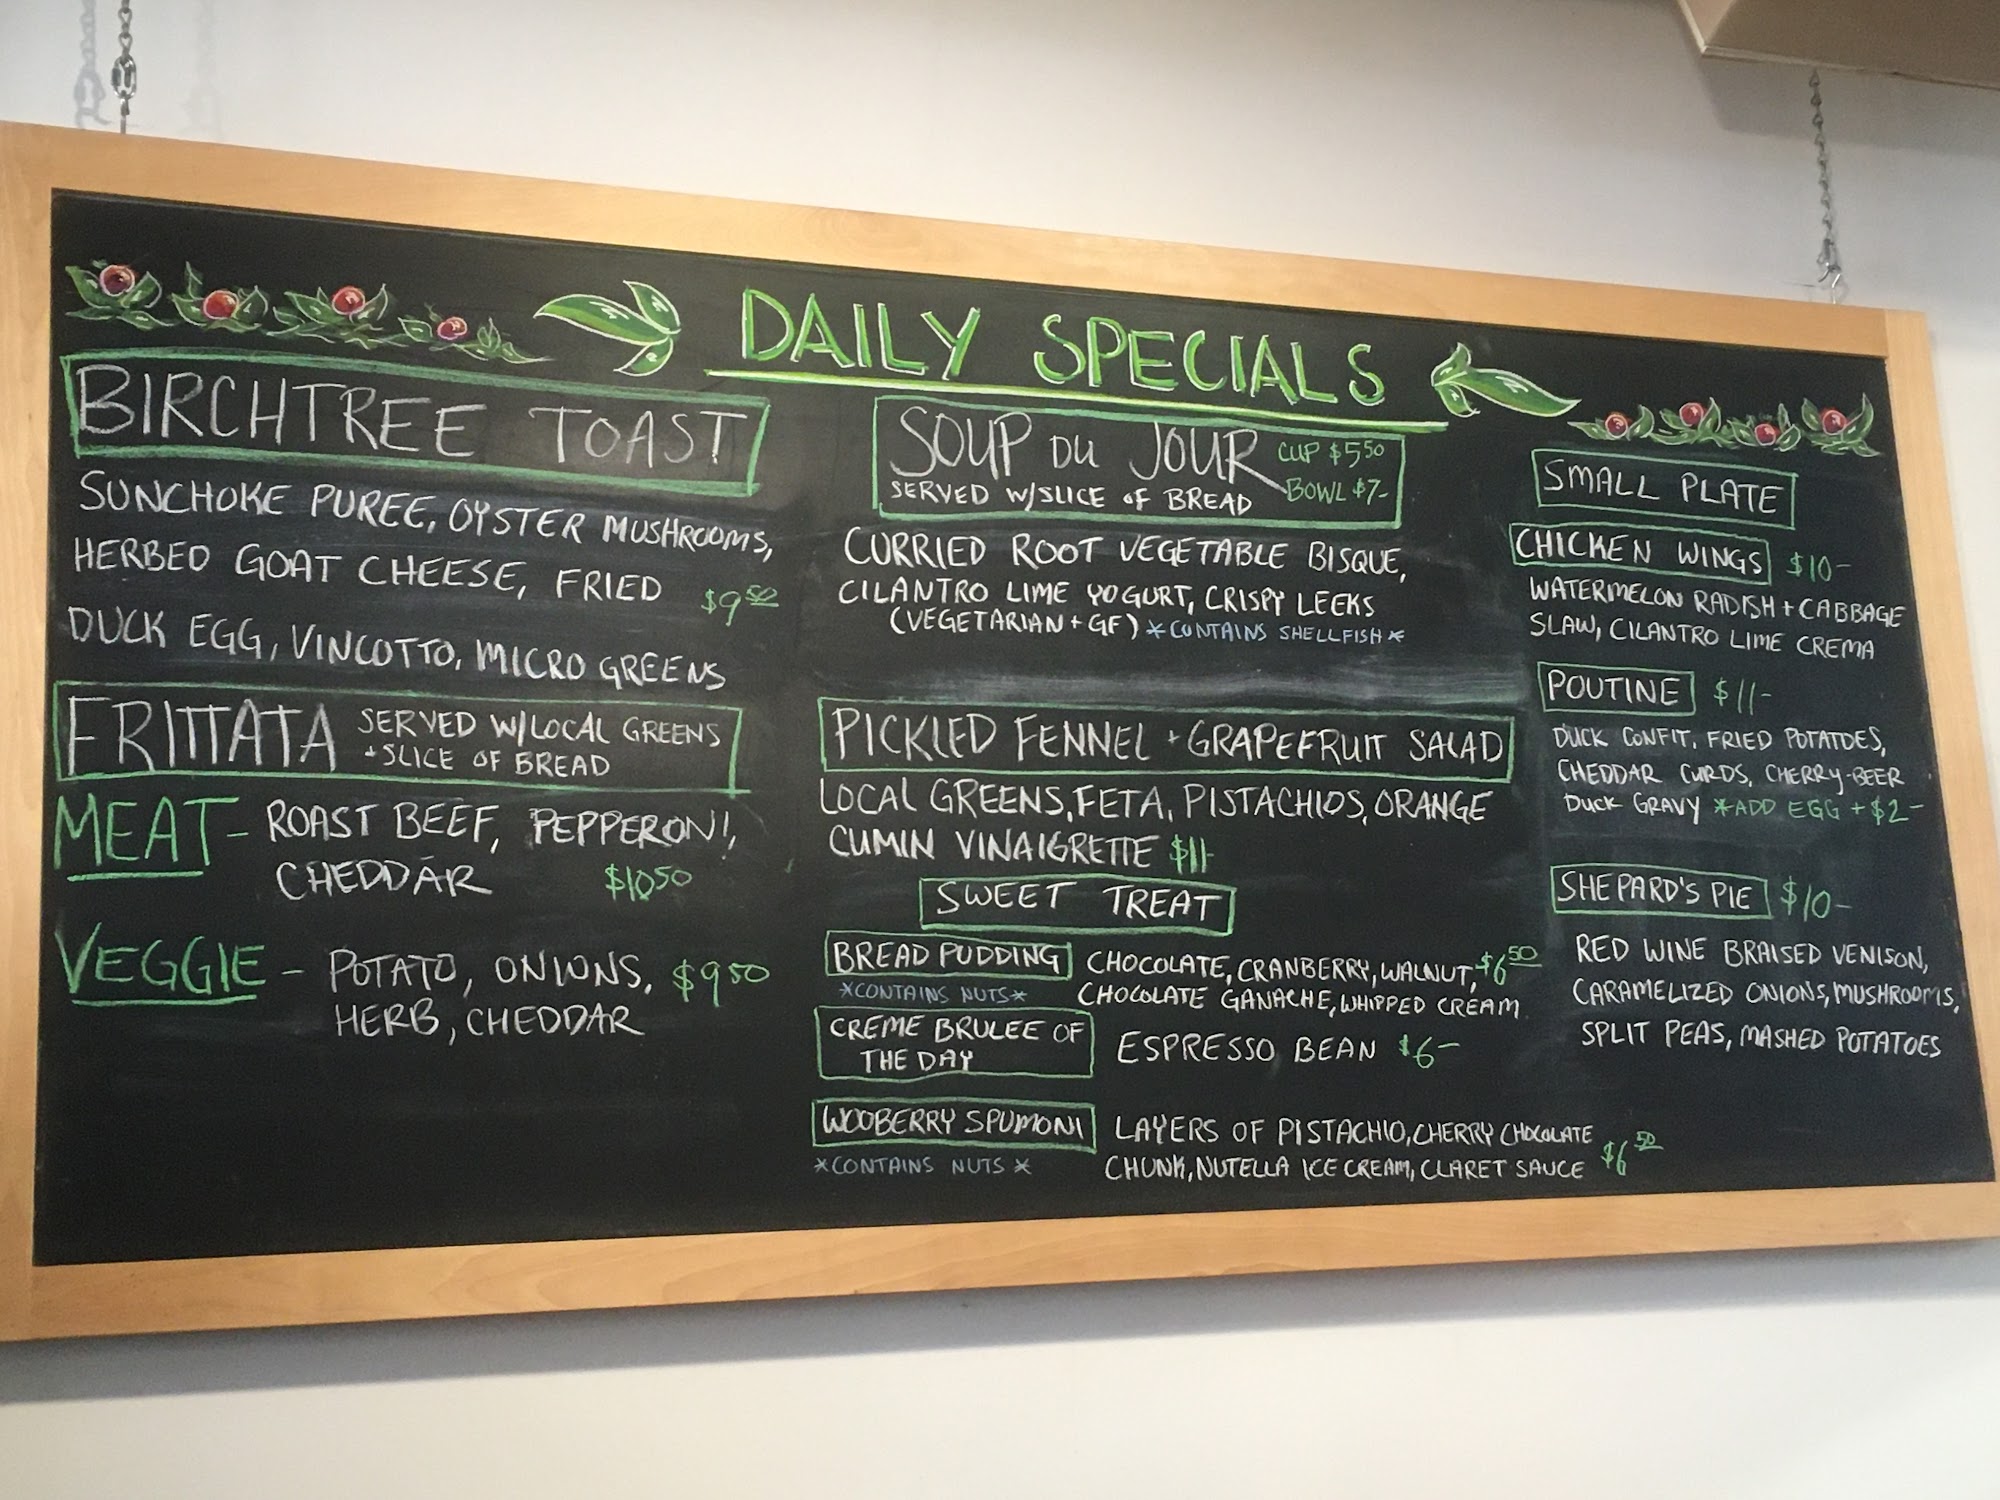 DAILY SPECIALS
BIRCHTREE TOAST
SUNCHOKE PUREE, OYSTER MUSHROOMS,
HERBED GOAT CHEESE, FRIED $9 50
DUCK EGG, VINCOTTO, MICRO GREENS
FRITTATA SERVED W/LOCAL GREENS
+ SLICE OF BREAD
MEAT - ROAST BEEF, PEPPERONI,
CHEDDAR $10 50
VEGGIE - POTATO, ONIONS, $9 50
HERB, CHEDDAR
SOUP DU JOUR CUP $5 50
SERVED W/SLICE OF BREAD BOWL $7-
CURRIED ROOT VEGETABLE BISQUE,
CILANTRO LIME YOGURT, CRISPY LEEKS
(VEGETARIAN + GF) *CONTAINS SHELLFISH*
PICKLED FENNEL + GRAPEFRUIT SALAD
LOCAL GREENS, FETA, PISTACHIOS, ORANGE
CUMIN VINAIGRETTE $11-
SWEET TREAT
BREAD PUDDING CHOCOLATE, CRANBERRY, WALNUT, $6 50
*CONTAINS NUTS* CHOCOLATE GANACHE, WHIPPED CREAM
CREME BRULEE OF
THE DAY ESPRESSO BEAN $6-
WOOBERRY SPUMONI LAYERS OF PISTACHIO, CHERRY CHOCOLATE
*CONTAINS NUTS* CHUNK, NUTELLA ICE CREAM, CLARET SAUCE $6 50
SMALL PLATE
CHICKEN WINGS $10-
WATERMELON RADISH + CABBAGE
SLAW, CILANTRO LIME CREMA
POUTINE $11-
DUCK CONFIT, FRIED POTATOES,
CHEDDAR CURDS, CHERRY-BEER
DUCK GRAVY *ADD EGG + $2-
SHEPARD'S PIE $10-
RED WINE BRAISED VENISON,
CARAMELIZED ONIONS, MUSHROOMS,
SPLIT PEAS, MASHED POTATOES